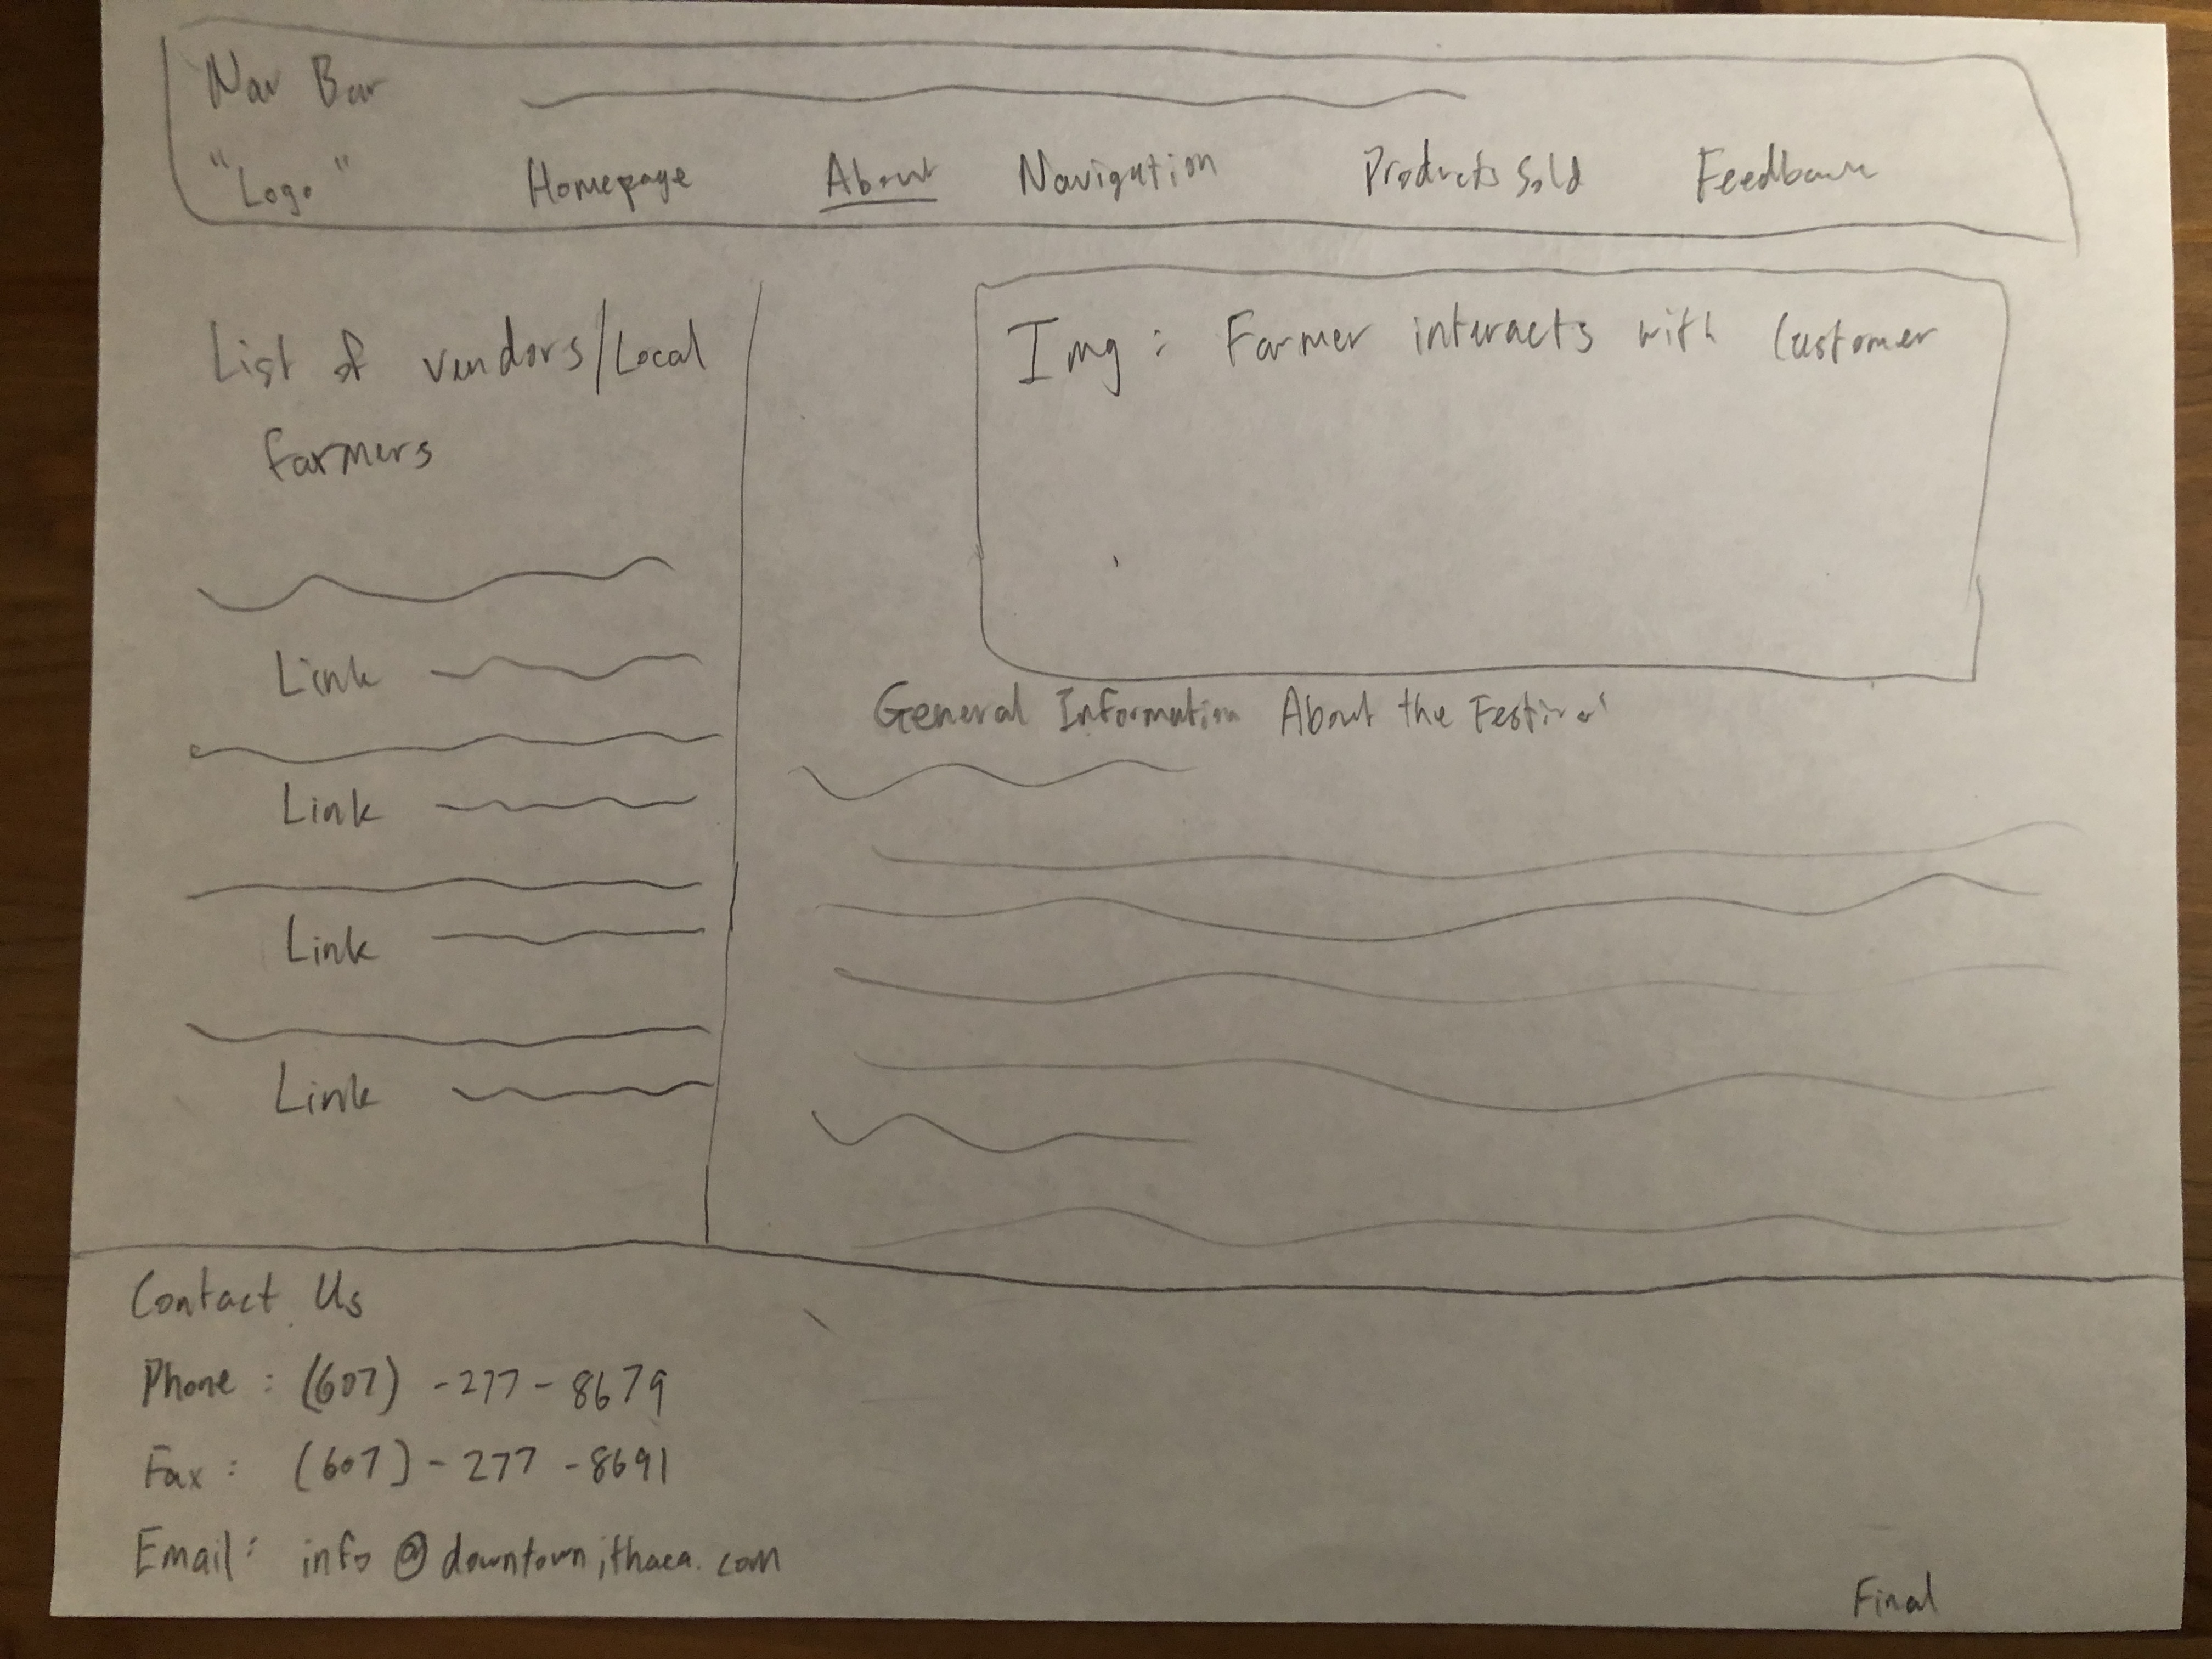 Nav Bar
"Logo" Homepage About Navigation Products Sold Feedback
List of vendors/Local
farmers
Link
Link
Link
Link
Img: Farmer interacts with Customer
General Information About the Festival
Contact Us
Phone: (607) -277-8679
Fax: (607)-277-8691
Email: info@downtownithaca.com
Final